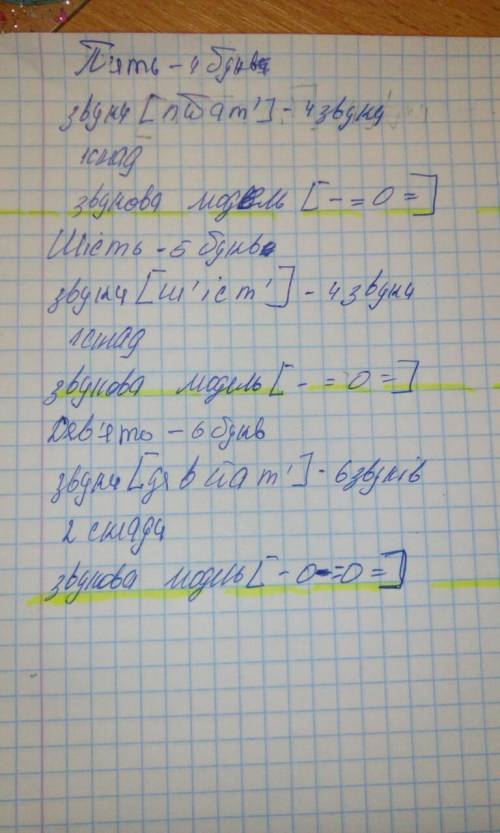 П'ять - 4 букв
звуки [п й а т'] - 4 звуки
1 склад
звукова модель [- = О =]
Шість - 5 букв
звуки [ш' і с т'] - 4 звуки
1 склад
звукова модель [- = О =]
Дев'ять - 6 букв
звуки [де в й а т'] - 6 звуків
2 склади
звукова модель [- О - = О =]